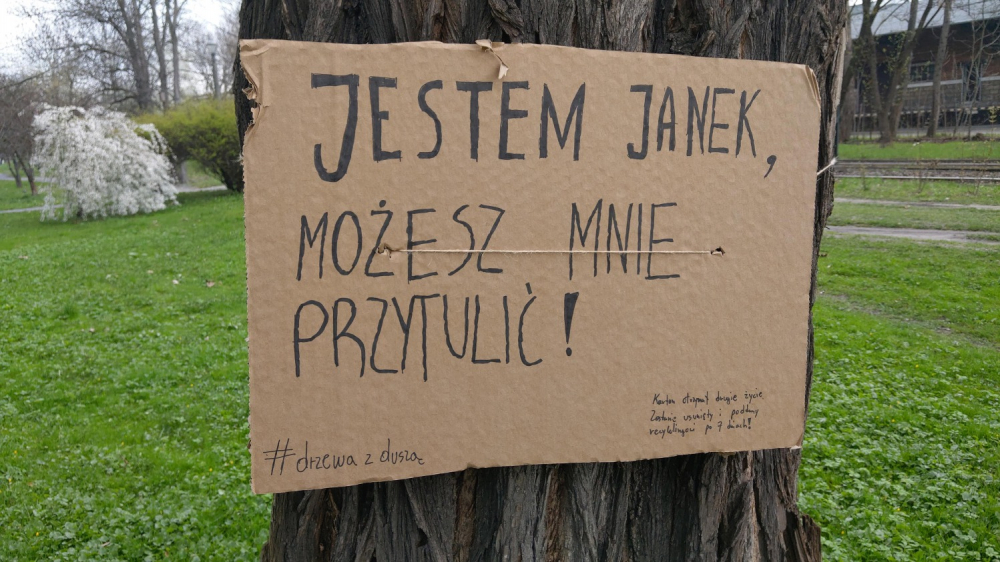 JESTEM JANEK,
MOŻESZ MNIE
PRZYTULIĆ!
Karton otrzymał drugie życie
Zostanie usunięty i poddany
recyklingowi po 7 dniach!
#drzewa z duszą